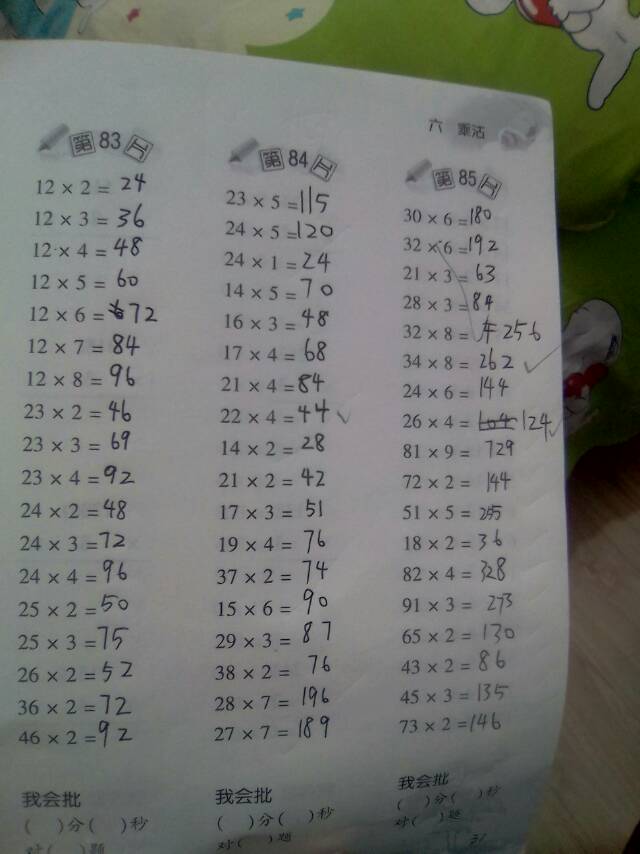 六 乘法
第83天
12 × 2 = 24
12 × 3 = 36
12 × 4 = 48
12 × 5 = 60
12 × 6 = 72
12 × 7 = 84
12 × 8 = 96
23 × 2 = 46
23 × 3 = 69
23 × 4 = 92
24 × 2 = 48
24 × 3 = 72
24 × 4 = 96
25 × 2 = 50
25 × 3 = 75
26 × 2 = 52
36 × 2 = 72
46 × 2 = 92
我会批
( )分( )秒
对( )题
第84天
23 × 5 = 115
24 × 5 = 120
24 × 1 = 24
14 × 5 = 70
16 × 3 = 48
17 × 4 = 68
21 × 4 = 84
22 × 4 = 44
14 × 2 = 28
21 × 2 = 42
17 × 3 = 51
19 × 4 = 76
37 × 2 = 74
15 × 6 = 90
29 × 3 = 87
38 × 2 = 76
28 × 7 = 196
27 × 7 = 189
我会批
( )分( )秒
对( )题
第85天
30 × 6 = 180
32 × 6 = 192
21 × 3 = 63
28 × 3 = 84
32 × 8 = 256
34 × 8 = 262
24 × 6 = 144
26 × 4 = 104 124
81 × 9 = 729
72 × 2 = 144
51 × 5 = 255
18 × 2 = 36
82 × 4 = 328
91 × 3 = 273
65 × 2 = 130
43 × 2 = 86
45 × 3 = 135
73 × 2 = 146
我会批
( )分( )秒
对( )题